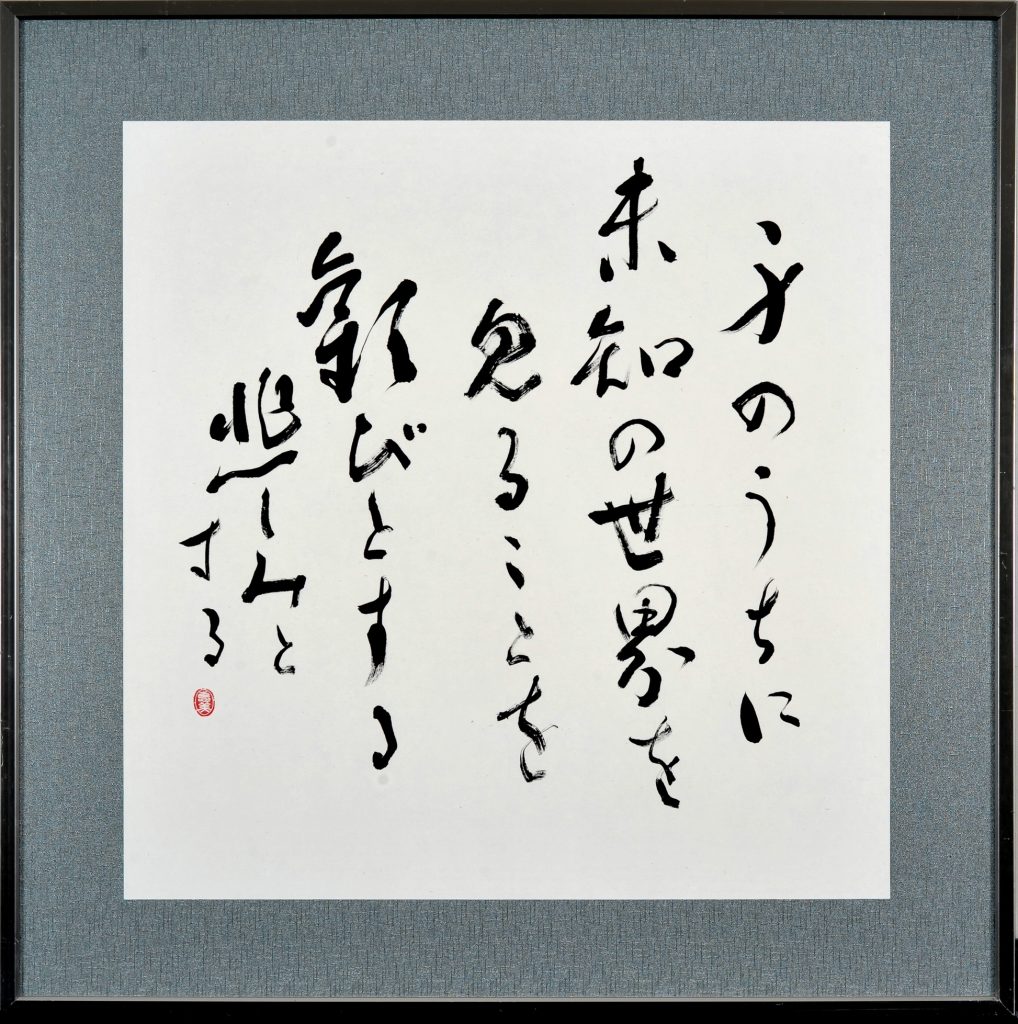 身のうちに
未知の世界を
見ることを
歓びとする
悲しみと
する